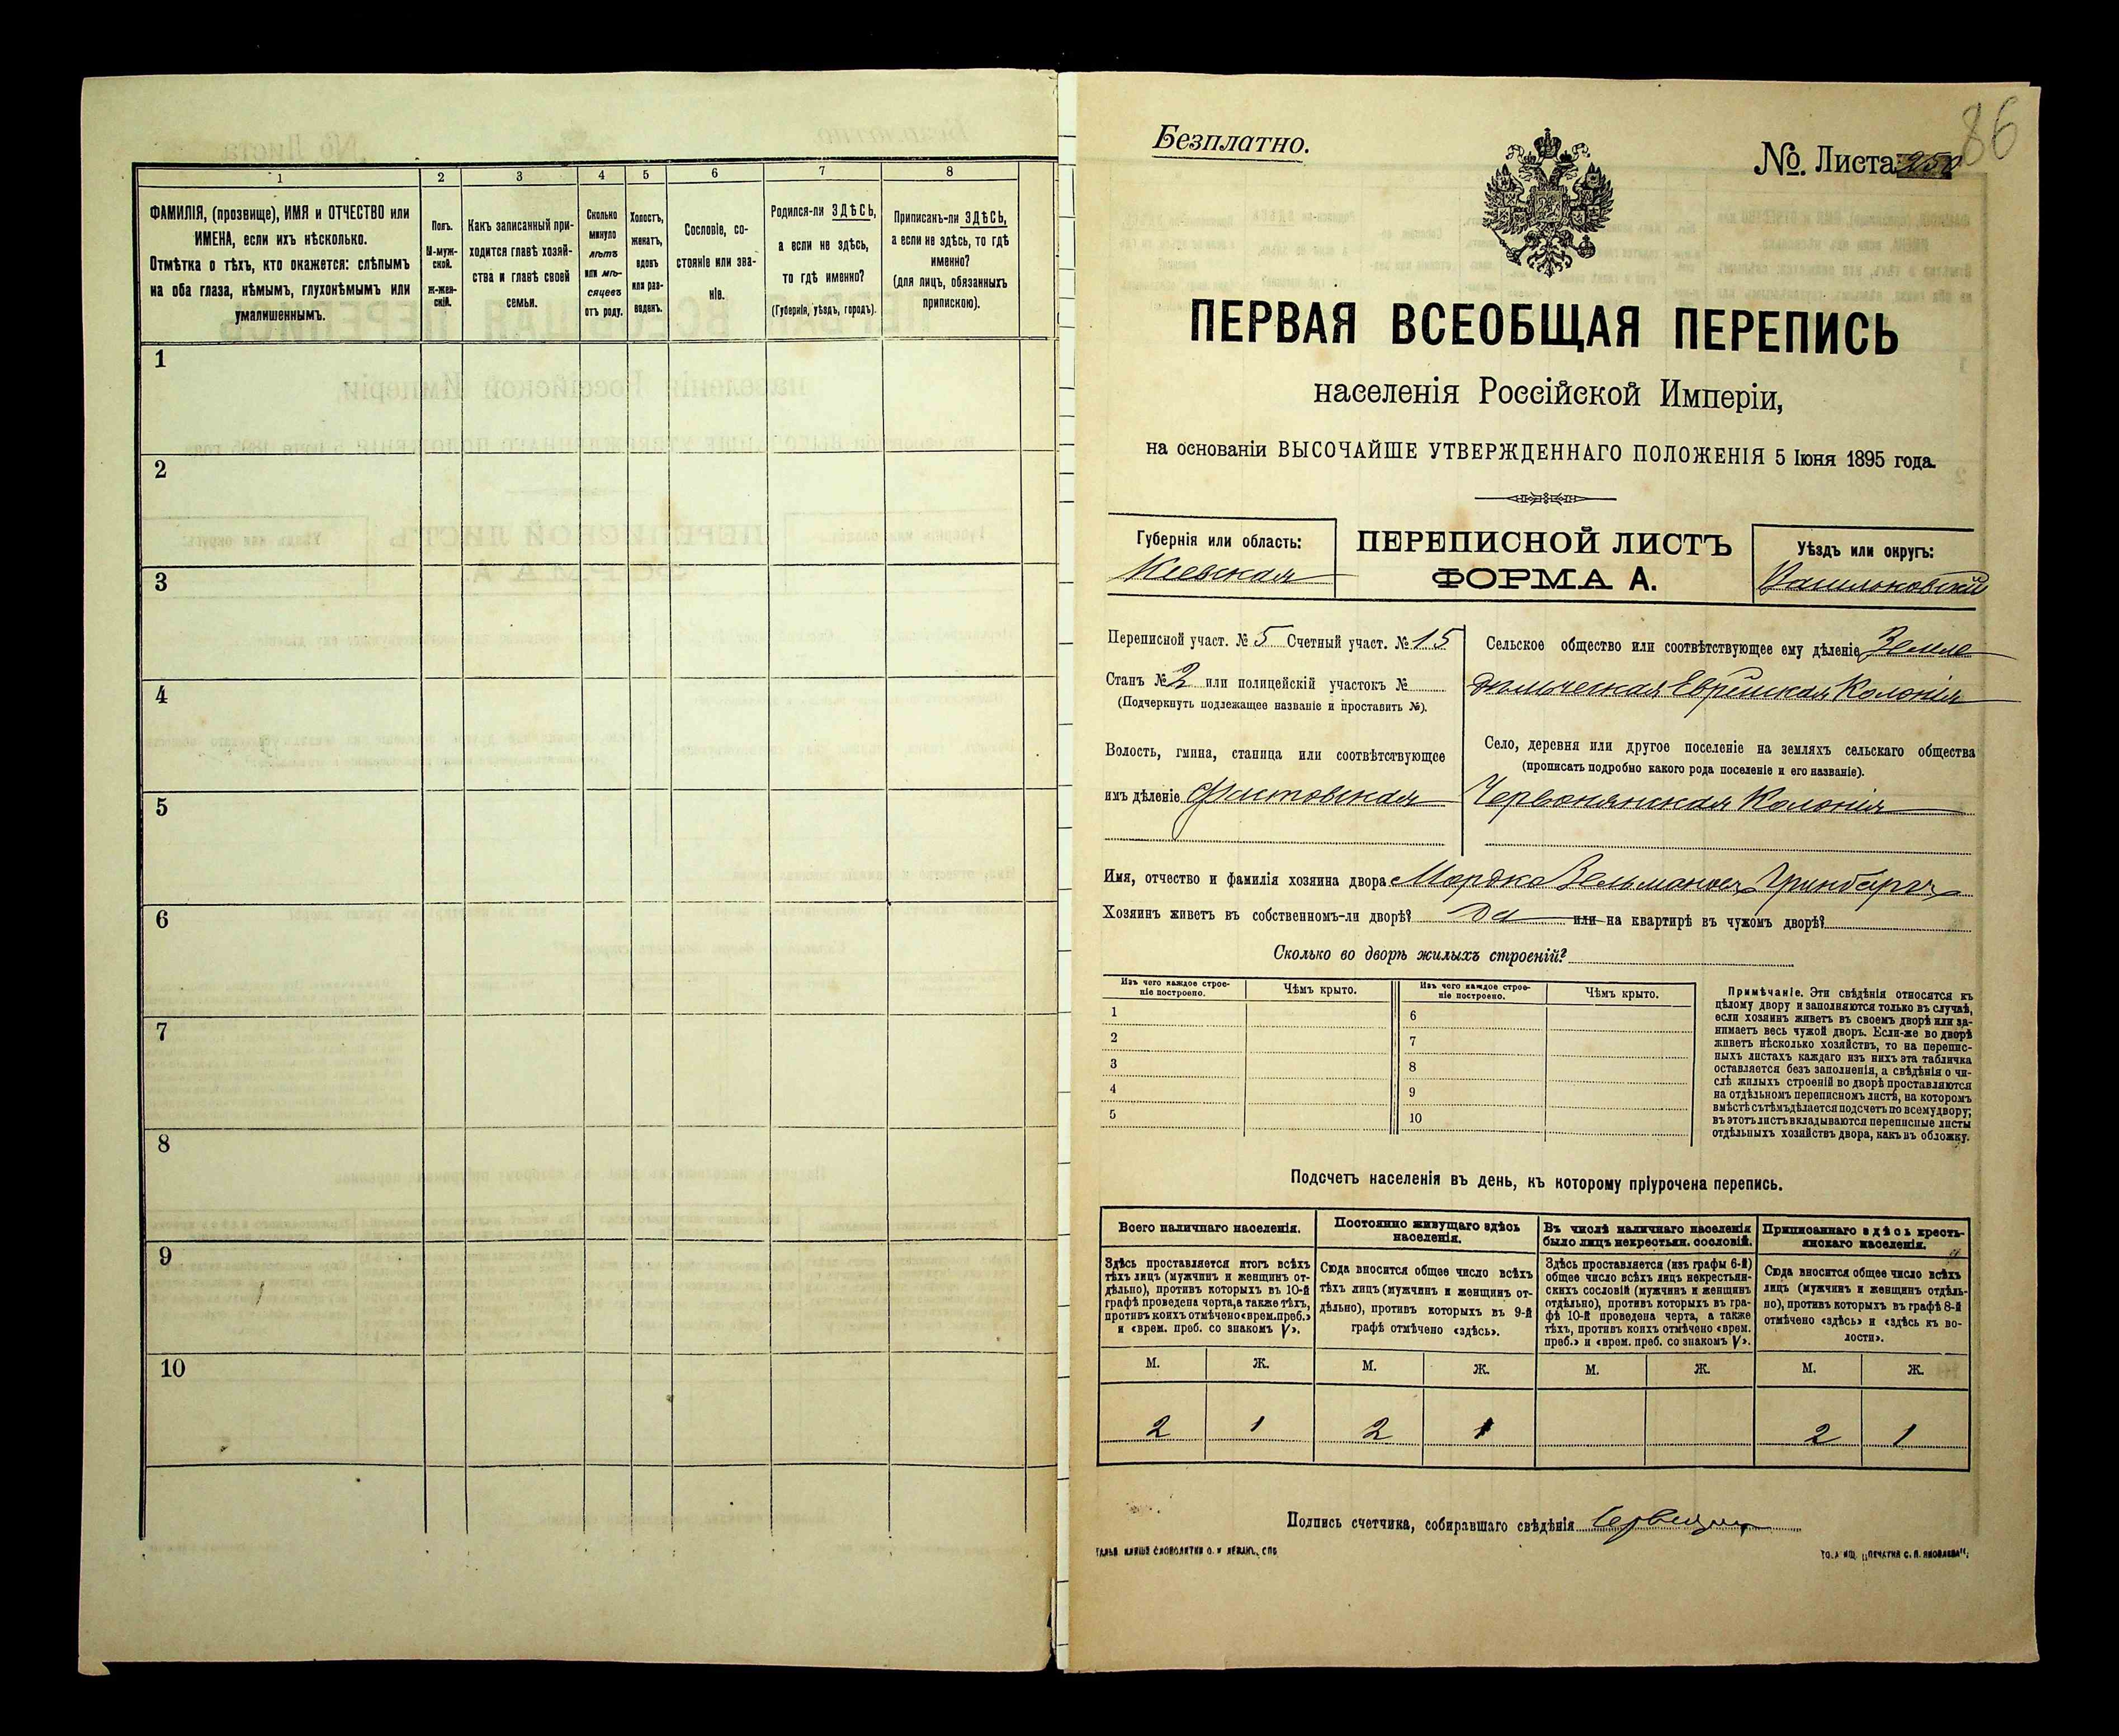 1
2
3
4
5
6
7
8
ФАМИЛІЯ, (прозвище), ИМЯ и ОТЧЕСТВО или
ИМЕНА, если ихъ нѣсколько.
Отмѣтка о тѣхъ, кто окажется: слѣпымъ
на оба глаза, нѣмымъ, глухонѣмымъ или
умалишеннымъ.
Полъ.
М-муж-
ской.
Ж-жен-
скій.
Какъ записанный при-
ходится главѣ хозяй-
ства и главѣ своей
семьи.
Сколько
минуло
лѣтъ
или мѣ-
сяцевъ
отъ роду.
Холостъ,
женатъ,
вдовъ
или раз-
веденъ.
Сословіе, со-
стояніе или зва-
ніе.
Родился-ли ЗДѢСЬ,
а если не здѣсь,
то гдѣ именно?
(Губернія, уѣздъ, городъ).
Приписанъ-ли ЗДѢСЬ,
а если не здѣсь, то гдѣ
именно?
(для лицъ, обязанныхъ
припискою).
1
2
3
4
5
6
7
8
9
10
86
Безплатно.
№. Листа
ПЕРВАЯ ВСЕОБЩАЯ ПЕРЕПИСЬ
населенія Россійской Имперіи,
на основаніи ВЫСОЧАЙШЕ УТВЕРЖДЕННАГО ПОЛОЖЕНІЯ 5 Іюня 1895 года.
Губернія или область:
Кіевская
ПЕРЕПИСНОЙ ЛИСТЪ
ФОРМА А.
Уѣздъ или округъ:
Васильковскій
Переписной участ. № 5 Счетный участ. № 15
Станъ № 2 или полицейскій участокъ №
(Подчеркнуть подлежащее названіе и проставить №).
Волость, гмина, станица или соотвѣтствующее
имъ дѣленіе Фастовская
Сельское общество или соотвѣтствующее ему дѣленіе Земле
дѣльческая Еврейская Колонія
Село, деревня или другое поселеніе на земляхъ сельскаго общества
(прописать подробно какого рода поселеніе и его названіе).
Червонянская Колонія
Имя, отчество и фамилія хозяина двора Мордко Зельмановъ Гринбергъ
Хозяинъ живетъ въ собственномъ-ли дворѣ? Да или на квартирѣ въ чужомъ дворѣ?
Сколько во дворѣ жилыхъ строеній?
Изъ чего каждое строе-
ніе построено.
Чѣмъ крыто.
Изъ чего каждое строе-
ніе построено.
Чѣмъ крыто.
1
2
3
4
5
6
7
8
9
10
Примѣчаніе. Эти свѣдѣнія относятся къ
цѣлому двору и заполняются только въ случаѣ,
если хозяинъ живетъ въ своемъ дворѣ или за-
нимаетъ весь чужой дворъ. Если-же во дворѣ
живетъ нѣсколько хозяйствъ, то на перепис-
ныхъ листахъ каждаго изъ нихъ эта табличка
оставляется безъ заполненія, а свѣдѣнія о чи-
слѣ жилыхъ строеній во дворѣ проставляются
на отдѣльномъ переписномъ листѣ, на которомъ
вмѣстѣ съ тѣмъ дѣлается подсчетъ по всему двору;
въ этотъ листъ вкладываются переписные листы
отдѣльныхъ хозяйствъ двора, какъ въ обложку.
Подсчетъ населенія въ день, къ которому пріурочена перепись.
Всего наличнаго населенія.
Здѣсь проставляется итогъ всѣхъ
тѣхъ лицъ (мужчинъ и женщинъ от-
дѣльно), противъ которыхъ въ 10-й
графѣ проведена черта, а также тѣхъ,
противъ коихъ отмѣчено «врем. преб.»
и «врем. преб. со знакомъ V».
Постоянно живущаго здѣсь
населенія.
Сюда вносится общее число всѣхъ
тѣхъ лицъ (мужчинъ и женщинъ от-
дѣльно), противъ которыхъ въ 9-й
графѣ отмѣчено «здѣсь».
Въ числѣ наличнаго населенія
было лицъ некрестьян. сословій.
Здѣсь проставляется (изъ графы 6-й)
общее число всѣхъ лицъ некрестьян-
скихъ сословій (мужчинъ и женщинъ
отдѣльно), противъ которыхъ въ гра-
фѣ 10-й проведена черта, а также
тѣхъ, противъ коихъ отмѣчено «врем.
преб.» и «врем. преб. со знакомъ V».
Приписаннаго здѣсь кресть-
янскаго населенія.
Сюда вносится общее число всѣхъ
лицъ (мужчинъ и женщинъ отдѣль-
но), противъ которыхъ въ графѣ 8-й
отмѣчено «здѣсь» и «здѣсь къ во-
лости».
М. Ж. М. Ж. М. Ж. М. Ж.
2 1 2 1 2 1
Подпись счетчика, собиравшаго свѣдѣнія